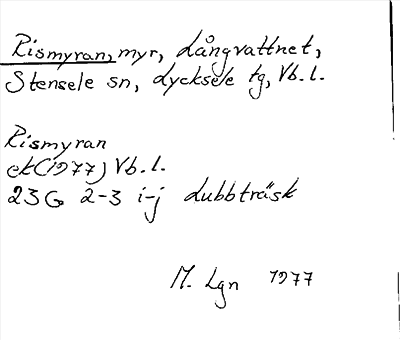 Rismyran, myr, Långvattnet,
Stensele sn, Lycksele tg, Vb. l.
Rismyran
ek (1977) Vb. l.
23 G 2-3 i-j Lubbträsk
M. Lgn 1977